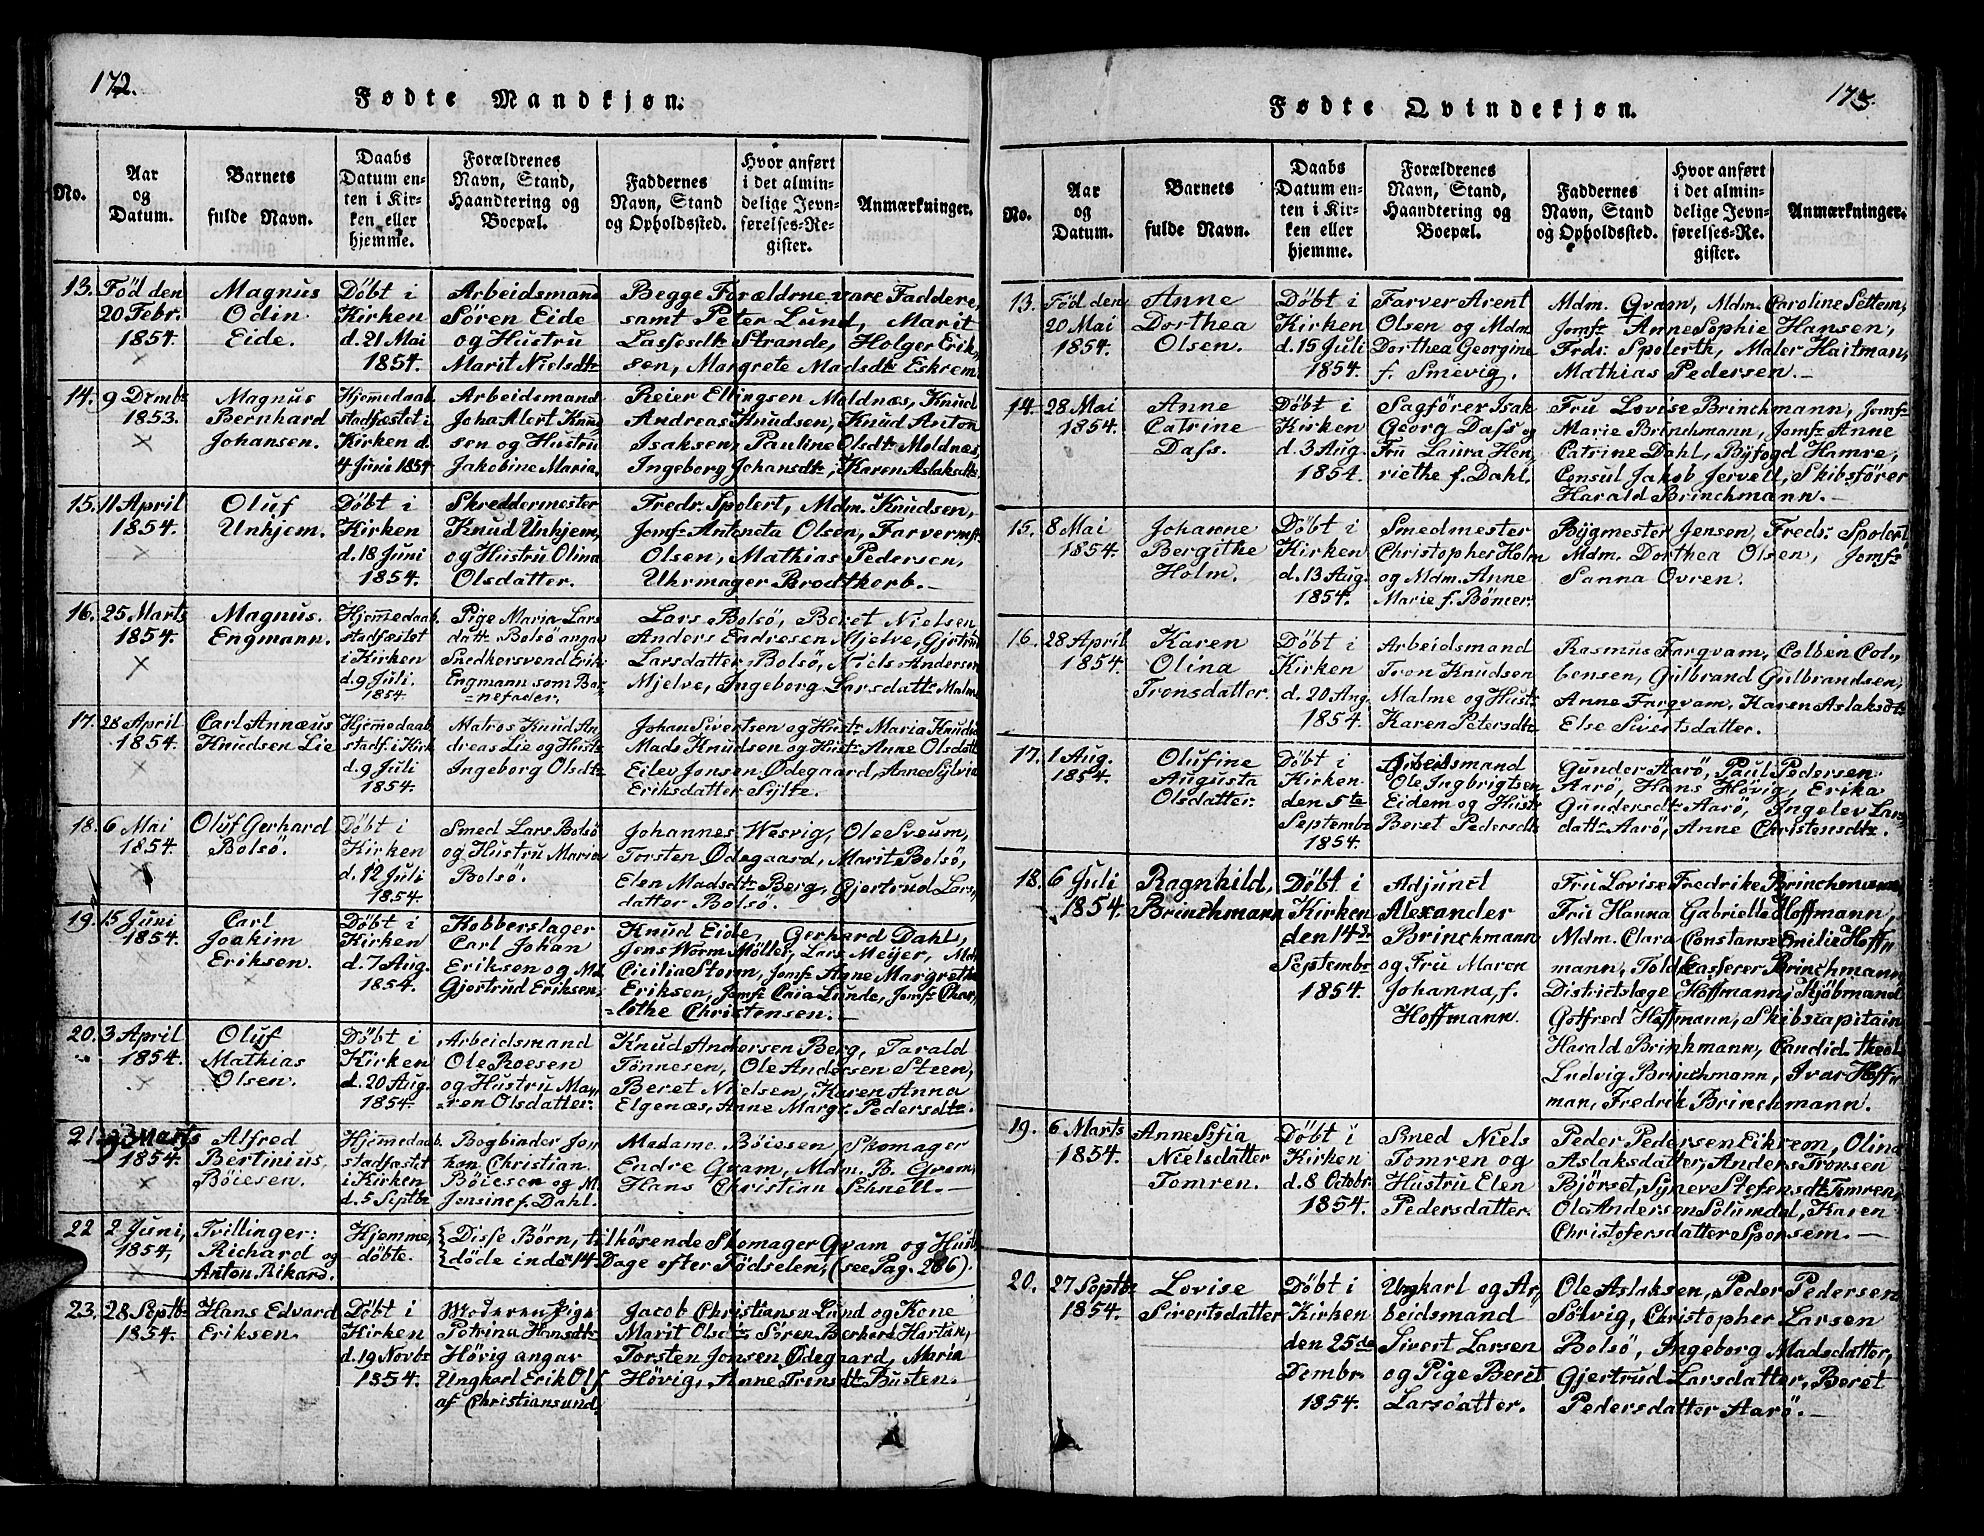 172.
Fødte Mandkjøn.
No.
Aar
og
Datum.
Barnets
fulde Navn.
Daabs
Datum en-
ten i Kir-
ken eller
hjemme.
Forældrenes
Navn, Stand,
Haandtering og
Boepæl.
Faddernes
Navn, Stand
og Opholdssted.
Hvor anført
i det almin-
delige Jevn-
førelses-Re-
gister.
Anmærkninger.
13.
Fød den
20 Febr.
1854.
Magnus
Odin
Eide.
Döbt i
Kirken
d. 21 Mai
1854.
Arbeidsmand
Sören Eide
og Hustru
Marit Nielsdtr
Begge Forældrne vare Faddere,
samt Peter Lund, Marit
Lassesdtr Strande, Holger Erik
sen, Margrete Madsdtr Eskrem.
14.
9 Dcmbr
1853.
Magnus
Bernhard
Johansen.
Hjemmedaab
stadfæstet i
Kirken d.
4 Juni 1854
Arbeidsmand
Joha Alert Knud
sen og Hustru
Jakobine Maria.
Reier Ellingsen Moldnæs, Knud
Andreas Knudsen, Knud Anton
Isaksen, Pauline Olsdtr Moldnæs,
Ingeborg Johansdtr, Karen Aslaksdtr
15.
11 April
1854.
Oluf
Unhjem.
Döbt i
Kirken
d. 18 Juni
1854.
Skreddermester
Knud Unhjem
og Hustru Olina
Olsdatter.
Fredr. Spolert, Mdm. Knudsen,
Jomfr Antoneta Olsen, Farvermstr
Olsen, Mathias Pedersen,
Uhrmager Brodtkorb.—
16.
25 Marts
1854.
Magnus.
Engmann.
Hjemmedaab
stadfæstet
i Kirken
d. 9 Juli.
1854.
Pige Maria Lars
datr. Bolsö angav
Snedkersvend Erik
Engmann som Bar
nefader.
Lars Bolsö, Beret Nielsen
Anders Endresen Mjelve, Gjertrud
Larsdatter Bolsö, Niels Andersen
Mjelve, Ingeborg Larsdatr Malme
17.
28 April
1854.
Carl Annæus
Knudsen Lie
Hjemmedaab
stadf. i Kirk
d. 9 Juli
1854.
Matros Knud An
dreas Lie og Hustr
Ingeborg Olsdtr
Johan Sivertsen og Hustr Maria Knuds
Mads Knudsen og Hustr Anne Olsdtr
Eilev Jonsen Ödegaard, Anne Sylvia
Eriksdatter Sylte.
18.
6 Mai
1854.
Oluf Gerhard
Bolsö.
Döbt i
Kirken
d. 12 Juli
1854.
Smed Lars Bolsö
og Hustru Maria
Bolsö.
Johannes Wesvig, Ole Sveum,
Torsten Ödegaard, Marit Bolsö,
Elen Madsdtr Berg, Gjertrud Lars,
datter Bolsö.
19.
15 Juni
1854.
Carl
Joakim
Eriksen.
Döbt i
Kirken
d. 7 Aug.
1854.
Kobberslager
Carl Johan
Eriksen og Md
Gjertrud Eriksen,
Knud Eide, Gerhard Dahl,
Jens Worm Möller, Lars Meyer, Md.
Cicilia Storm, Jomfr Anne Margrethe
Eriksen, Jomfr Caia Lunde, Jomfr Char,
lothe Christensen.—
20.
3 April
1854.
Oluf
Mathias
Olsen.
Döbt i
Kirken
d. 20 Aug.
1854.
Arbeidsmand
Ole Roesen
og Hustru Ma,,
ren Olsdatter.
Knud Andersen Berg, Tarald
Tönnesen, Ole Andersen Steen,
Beret Nielsen, Karen Anna
Elgenæs, Anne Margr. Pedersdtr.
21.
Marts
1854.
Alfred
Bertinius
Böiesen.
Hjemmedaab
stadfæstet
i Kirken
d. 5 Septbr
Bogbinder Jo,,
han Christian
Böiesen og M.
Jensine f. Dahl.
Madame Böiesen, Skomager
Endre Qvam, Mdm. B. Qvam,
Hans Christian Schnell.—
22
2 Juni,
1854,
Tvillinger:
Richard og
Anton Rikard.
Hjemme,
döbte.
Disse Börn, tilhörende Skomager Qvam og Hust
döde inden 14 Dage efter Födselen, (see Pag. 286).
23.
28 Septbr
1854.
Hans Edvard
Eriksen.
Döbt i
Kirken
d. 19 Novbr
1854.
Moderen Pige
Petrina Hansdtr
Hövig angav
Ungkarl Erik Ols
af Christiansund.
Jacob Christiansn Lund og Kone
Marit Olsdtr Sören Berhard Hartan,
Torsten Jonsen Ödegaard, Maria
Hövig, Anne Tronsdtr Busten.
173.
Fødte Qvindekjøn.
No.
Aar
og
Datum.
Barnets
fulde Navn.
Daabs
Datum en-
ten i Kir-
ken eller
hjemme.
Forældrenes
Navn, Stand,
Haandtering og
Boepæl.
Faddernes
Navn, Stand
og Opholdssted.
Hvor anført
i det almin-
delige Jevn-
førelses-Re-
gister.
Anmærkninger.
13.
Fød den
20 Mai
1854.
Anne
Dorthea
Olsen.
Döbt i
Kirken
d. 15 Juli
1854.
Farver Arent
Olsen og Mdm
Dorthea Georgine
f. Smevig.
Mdm. Qvam, Mdm. Caroline Settem,
Jomfr Anne Sophie Hansen,
Frdr: Spolerth, Maler Haitman,
Mathias Pedersen.—
14.
28 Mai
1854.
Anne
Catrine
Dass.
Döbt i
Kirken
d. 3 Aug.
1854.
Sagförer Isak
Georg Dass og
Fru Laura Hen,
riethe f. Dahl.
Fru Lovise Brinchmann, Jomfr
Marie Brinchmann, Jomfr Anne
Catrine Dahl, Byfogd Hamre,
Consul Jakob Jervell, Skibsförer
Harald Brinchmann.—
15.
8 Mai
1854.
Johanne
Bergithe
Holm.
Döbt i
Kirken
d. 13 Aug.
1854.
Smedmester
Christopher Holm
og Mdm. Anne
Marie f. Bömer.
Bygmester Jensen, Fredr: Spolert
Mdm. Dorthea Olsen, Jomfr
Sanna Ovren.
16.
28 April
1854.
Karen
Olina
Tronsdatter.
Döbt i
Kirken
d. 20 Aug.
1854.
Arbeidsmand
Tron Knudsen
Malme og Hustr
Karen Petersdtr
Rasmus Farqvam, Colben Col,
bensen, Gulbrand Gulbrandsen,
Anne Farqvam, Karen Aslaksdtr
Else Sivertsdatter.
17.
1 Aug.
1854.
Olufine
Augusta
Olsdatter.
Döbt i
Kirken
den 5te
Septembr
1854.
Arbeidsmand
Ole Ingbrigtsen
Eidem og Hustr
Beret Pedersdtr
Gunder Aarö, Paul Pedersen
Aarö, Hans Hövig, Erika
Gundersdtr Aarö, Ingelev Lars
datr Aarö, Anne Christensdtr.
18.
6 Juli
1854.
Ragnhild,
Brinchmann
Döbt i
Kirken
den 14de
Septembr
1854.
Adjunct
Alexander
Brinchmann
og Fru Maren
Johanna, f.
Hoffmann.
Fru Lovise Fredrike Brinchmann
Fru Hanna Gabrielle Hoffmann,
Mdm. Clara Constanse Emilie Hoff,,
mann, Told Casserer Brinchmann
Districtslæge Hoffmann, Kjöbmand
Gotfred Hoffmann, Skibscapitain
Harald Brinchmann, Candid. theol.
Ludvig Brinchmann, Ivar Hoff,,
man, Fredrik Brinchmann.
19.
6 Marts
1854.
Anne Sofia
Nielsdatter
Tomren.
Döbt i
Kirken
d. 8 Octobr
1854.
Smed Niels
Tomren og
Hustru Elen
Pedersdatter.
Peder Pedersen Eikrem, Olina
Aslaksdatter, Anders Tronsen
Björset, Synev Stefensdtr Tomren,
Ola Andersen Solumdal, Karen
Christofersdatter Sporsem.—
20.
27 Septbr
1854.
Lovise
Sivertsdatter
Döbt i
Kirken
den 25de
Dcembr.
1854.
Ungkarl og Ar,
beidsmand
Sivert Larsen
og Pige Beret
Larsdatter.
Ole Aslaksen, Peder Pedersen
Sölvig, Christopher Larsen
Bolsö, Ingeborg Madsdatter,
Gjertrud Larsdatter, Beret
Pedersdatter Aarö.—